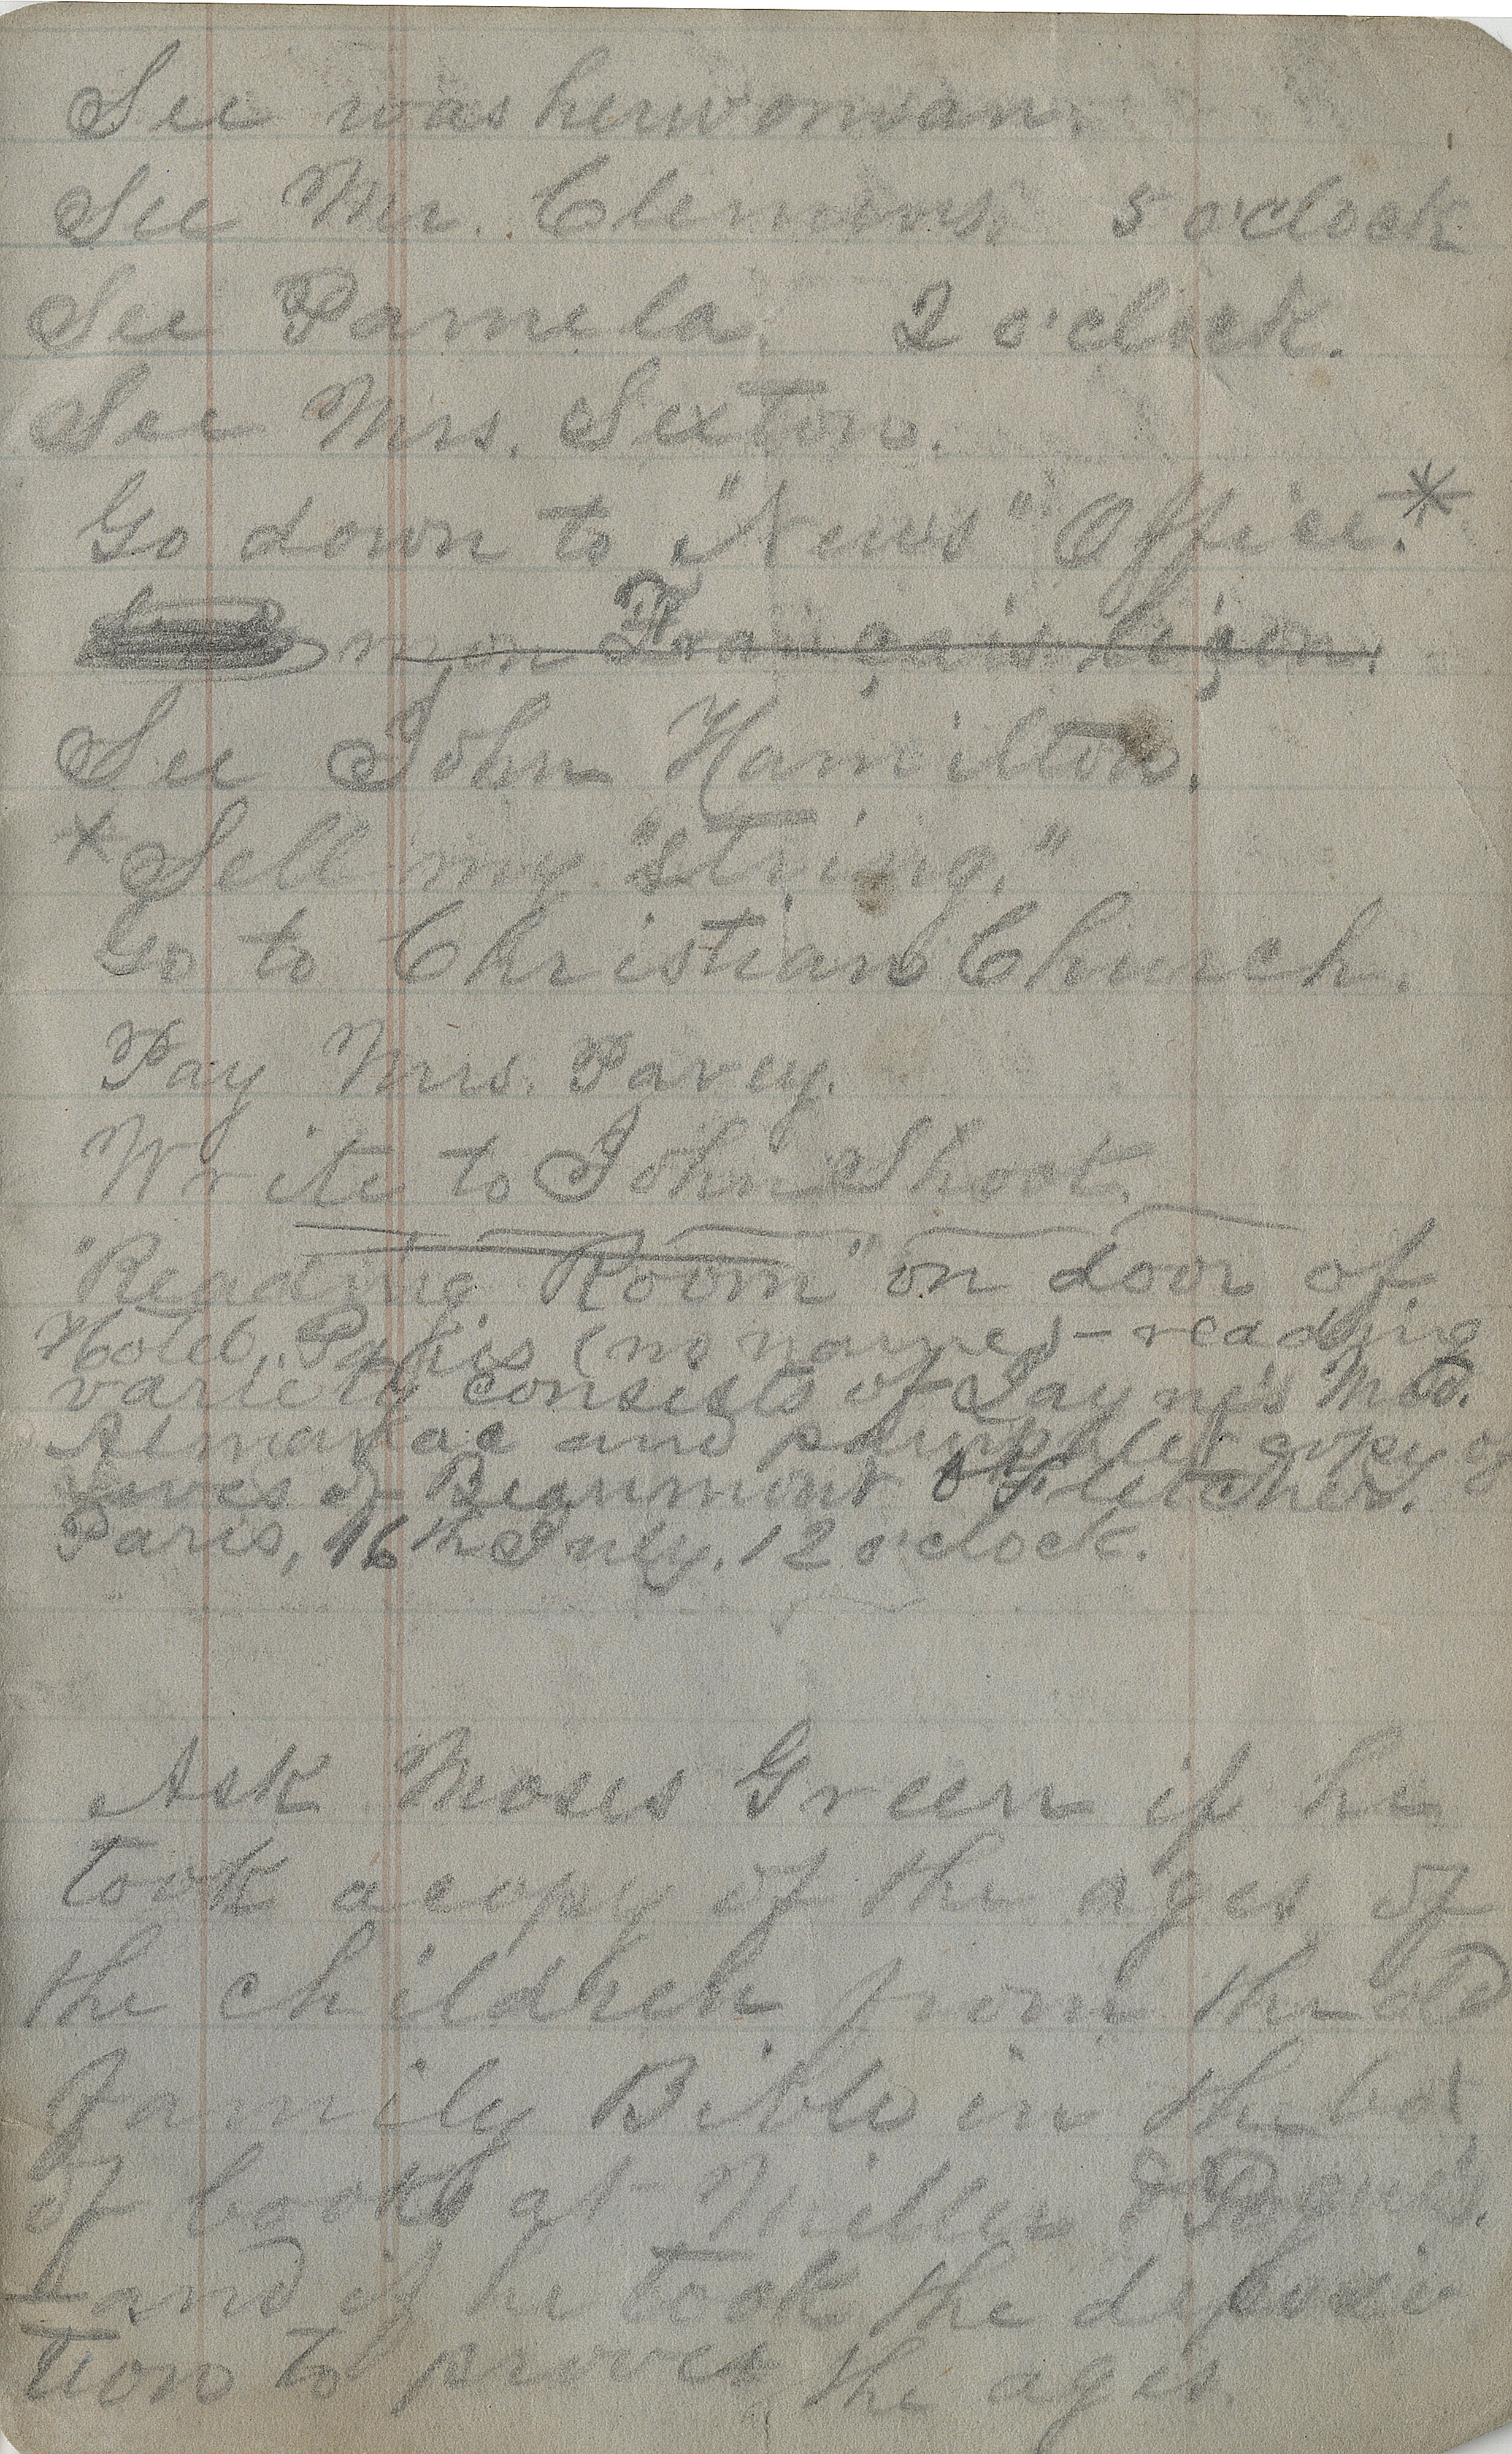 See washerwoman.
See Mr. Clemens. 5 o'clock
See Pamela. 2 o'clock.
See Mrs. Sexton.
Go down to "News" Office.*
mon Français liçon.
See John Hamilton.
* Sell my "string."
Go to Christian Church.
Pay Mrs. Pavey.
Write to John Shoot.
"Reading Room" on door of
Hotel, Paris (no name) – reading
variety consists of Jayne's Med.
Almanac and pamphlet copy of
Lives of Beaumont & Fletcher.
Paris, 16th July. 12 o'clock.
Ask Moses Green if he
took a copy of the ages of
the children from the old
Family Bible in the box
of books at Miller &
— and if he took the deposi
tion to proves the ages.